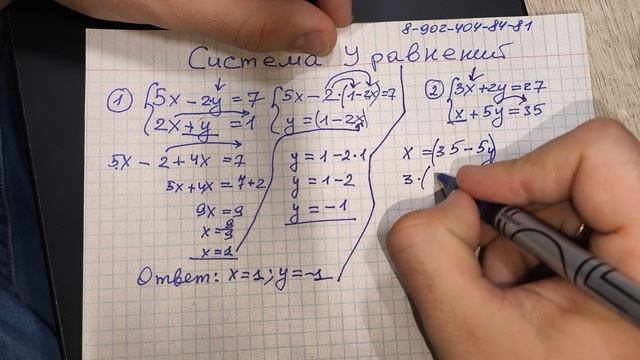 8-902-404-84-81
Система Уравнений
① { 5x - 2y = 7
2x + y = 1
{ 5x - 2·(1-2x) = 7
y = (1-2x)
5x - 2 + 4x = 7
5x + 4x = 7+2
9x = 9
x = 9/9
x = 1
y = 1-2·1
y = 1-2
y = -1
Ответ: x=1; y=-1
② { 3x + 2y = 27
x + 5y = 35
x = (35-5y)
3·(